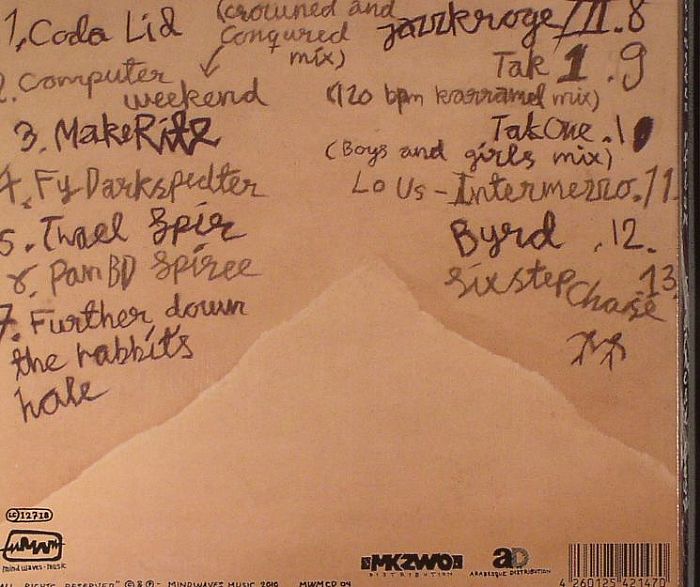 1, Coda Lid
(crowned and
Conqured
mix)
2. Computer
weekend
3. MakeRitz
4. Fy Darkspedter
5. Twael Spir
6. Pam BD Spiree
7. Further down
the rabbits
hole
jazzkroge/II.8
Tak 1.9
(120 bpm karramel mix)
TakOne.10
(Boys and girls mix)
Lo Us - Intermezzo.11
Byrd .12.
Sixstep Chase 13
LC 12718
mind waves-music
ALL RIGHTS RESERVED © & ℗ - MINDWAVES MUSIC 2010 MWMCD 04
MKZWO
DISTRIBUTION
aD
ARABESQUE DISTRIBUTION
4 260125 421470